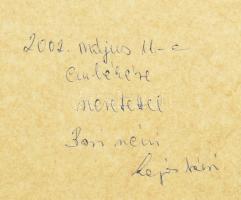 2002. május 11-e
emlékére
szeretetel
Bori néni
Lajos bácsi